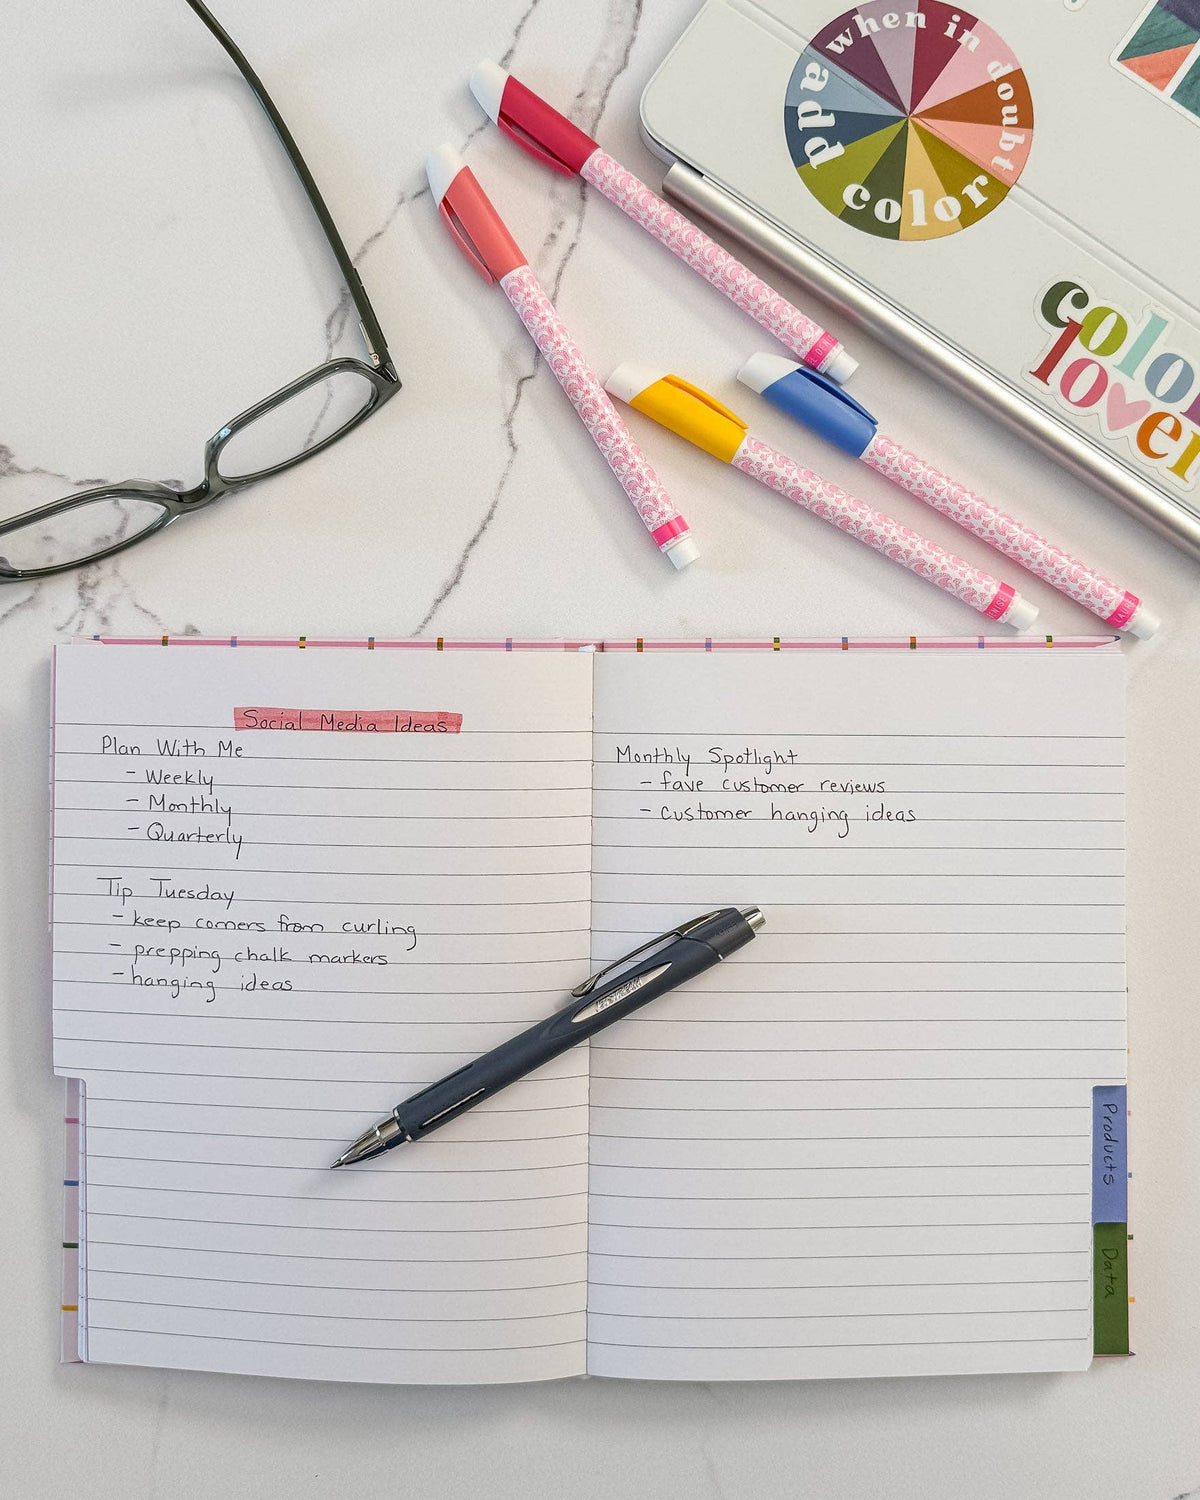 when in doubt
add color
color
lover
Social Media Ideas
Plan With Me
- Weekly
- Monthly
- Quarterly
Tip Tuesday
- keep corners from curling
- prepping chalk markers
- hanging ideas
Monthly Spotlight
- fave customer reviews
- customer hanging ideas
Products
Data